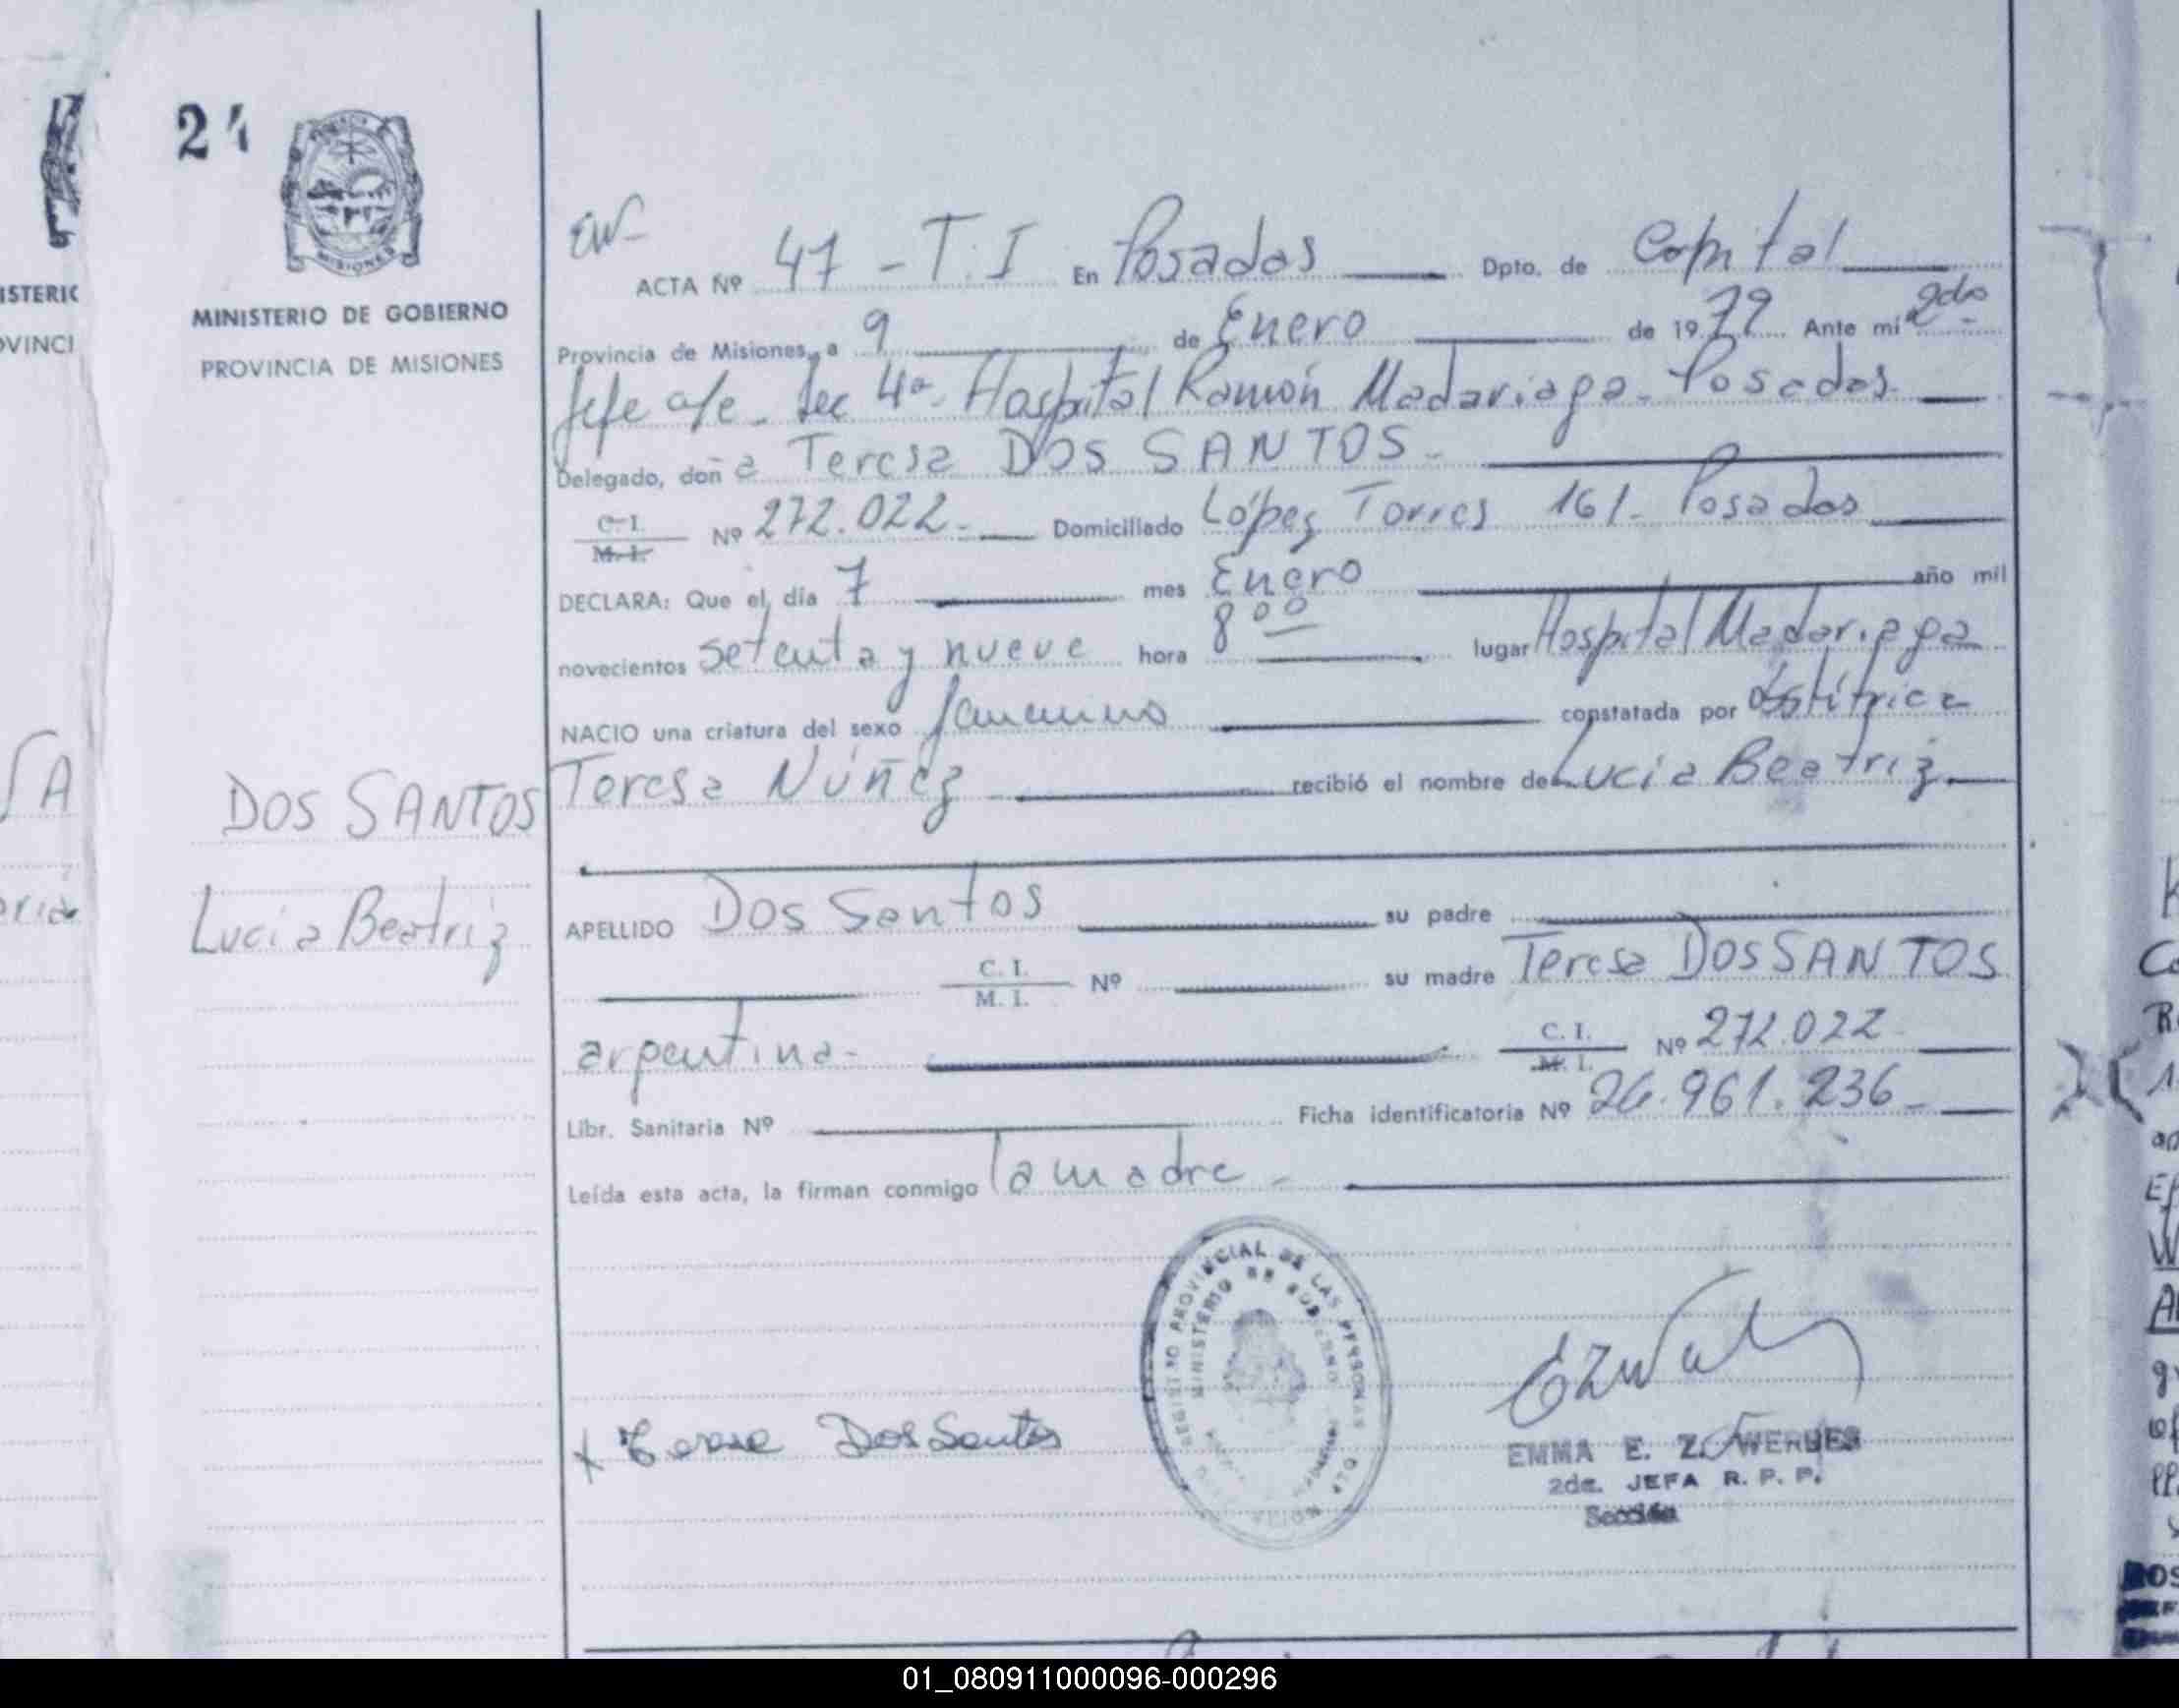 24
MINISTERIO DE GOBIERNO
PROVINCIA DE MISIONES
DOS SANTOS
Lucia Beatriz
ACTA Nº 47 - T.I En Posadas Dpto. de Capital
Provincia de Misiones, a 9 de Enero de 1979 Ante mí 2do
Jefe a/c. Sec 4ª. Hospital Ramón Madariaga - Posadas
Delegado, doña Teresa DOS SANTOS.
C. I.
M. I.
Nº 272.022. Domiciliado López Torres 161 - Posadas
DECLARA: Que el día 7 mes Enero año mil
novecientos setenta y nueve hora 8 00 lugar Hospital Madariaga
NACIO una criatura del sexo femenino constatada por
Teresa Núñez recibió el nombre de Lucia Beatriz
APELLIDO Dos Santos su padre
C. I.
M. I.
Nº su madre Teresa DOS SANTOS
argentina-
C. I.
M. I.
Nº 272.022
Libr. Sanitaria Nº Ficha identificatoria Nº 26.961.236
Leída esta acta, la firman conmigo la madre -
REGISTRO PROVINCIAL DE LAS PERSONAS
MINISTERIO DE GOBIERNO
x Teresa Dos Santos
EMMA E. Z.
2da. JEFA R. P. P.
Sección
01_080911000096-000296